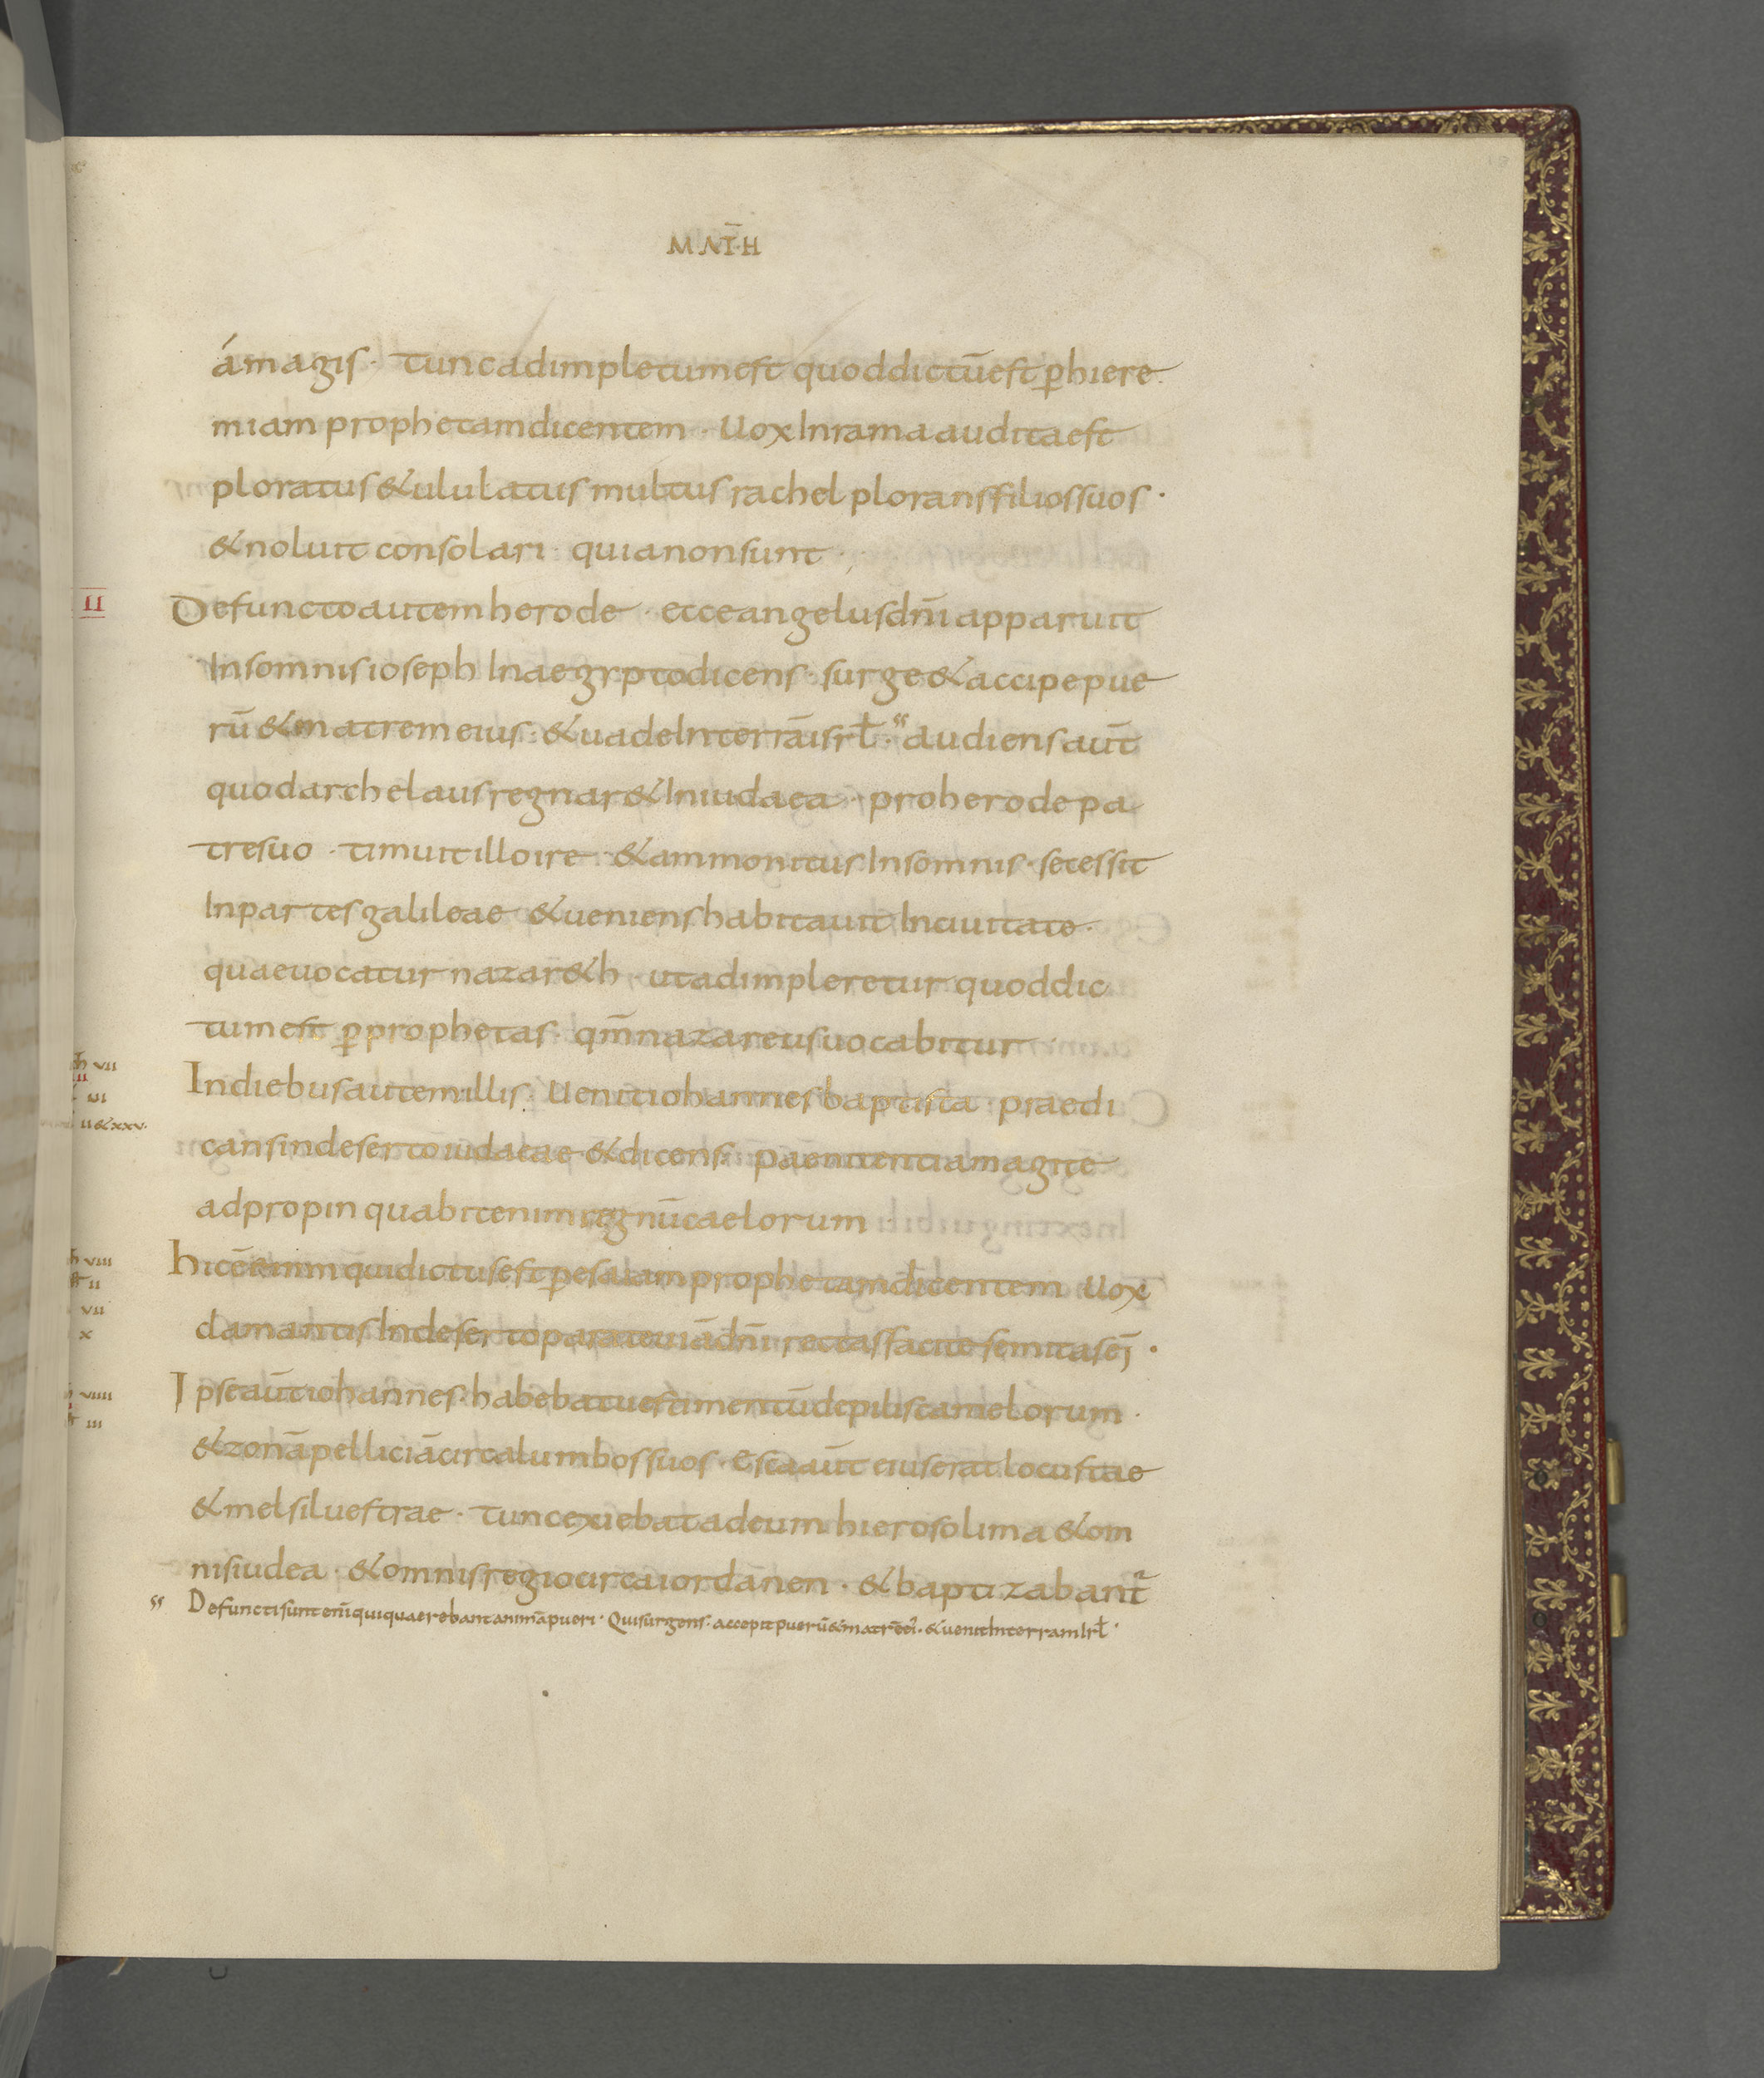 M·NT̄·H
ámagis · tunc adimpletum est quod dictū est ꝑ hiere
miam prophetam dicentem · Uox In rama audita est
ploratus & ululatus multus rachel plorans filios suos ·
& noluit consolari · quia non sunt ·
II
Defuncto autem herode · ecce angelus dn̄i apparuit
In somnis ioseph In aegypto dicens · surge & accipe pue
rū & matrem eius · & uade In terrā isrł · audiens aut̄
quod archelaus regnar& In iudaea · pro herode pa
tre suo · timuit illo ire · & ammonitus In somnis · secessit
In partes galileae & ueniens habitauit In ciuitate ·
quae uocatur nazar&h · ut adimpleretur quod dic
tum est ꝑ prophetas · qm̄ nazareus uocabitur
vii
iii
ii & xxv·
In diebus autem illis · Uenit iohannes baptista · praedi
cans in deserto iudaeae & dicens · paenitentiam agite
adpropinquabit enim regnū caelorum
viii
ii
vii
x
hic ē enim qui dictus est ꝑ esaiam prophetam dicentem Uox
clamantis In deserto parate uiā dn̄i rectas facite semitas ei ·
viiii
iii
Ipse aut̄ iohannes · habebat uestimentū de pilis camelorum ·
& zonā pelliciā circa lumbos suos · Esca aut̄ eius erat locustae
& mel siluestrae · tunc exiebat ad eum hierosolima & om
nis iudea · & omnis regio circa iordanen · & baptizabant̄
Defuncti sunt eni̅ qui quaerebant animā pueri · Qui surgens · accepit puerū & matrē ei᾽ · & uenit In terram Isrł ·